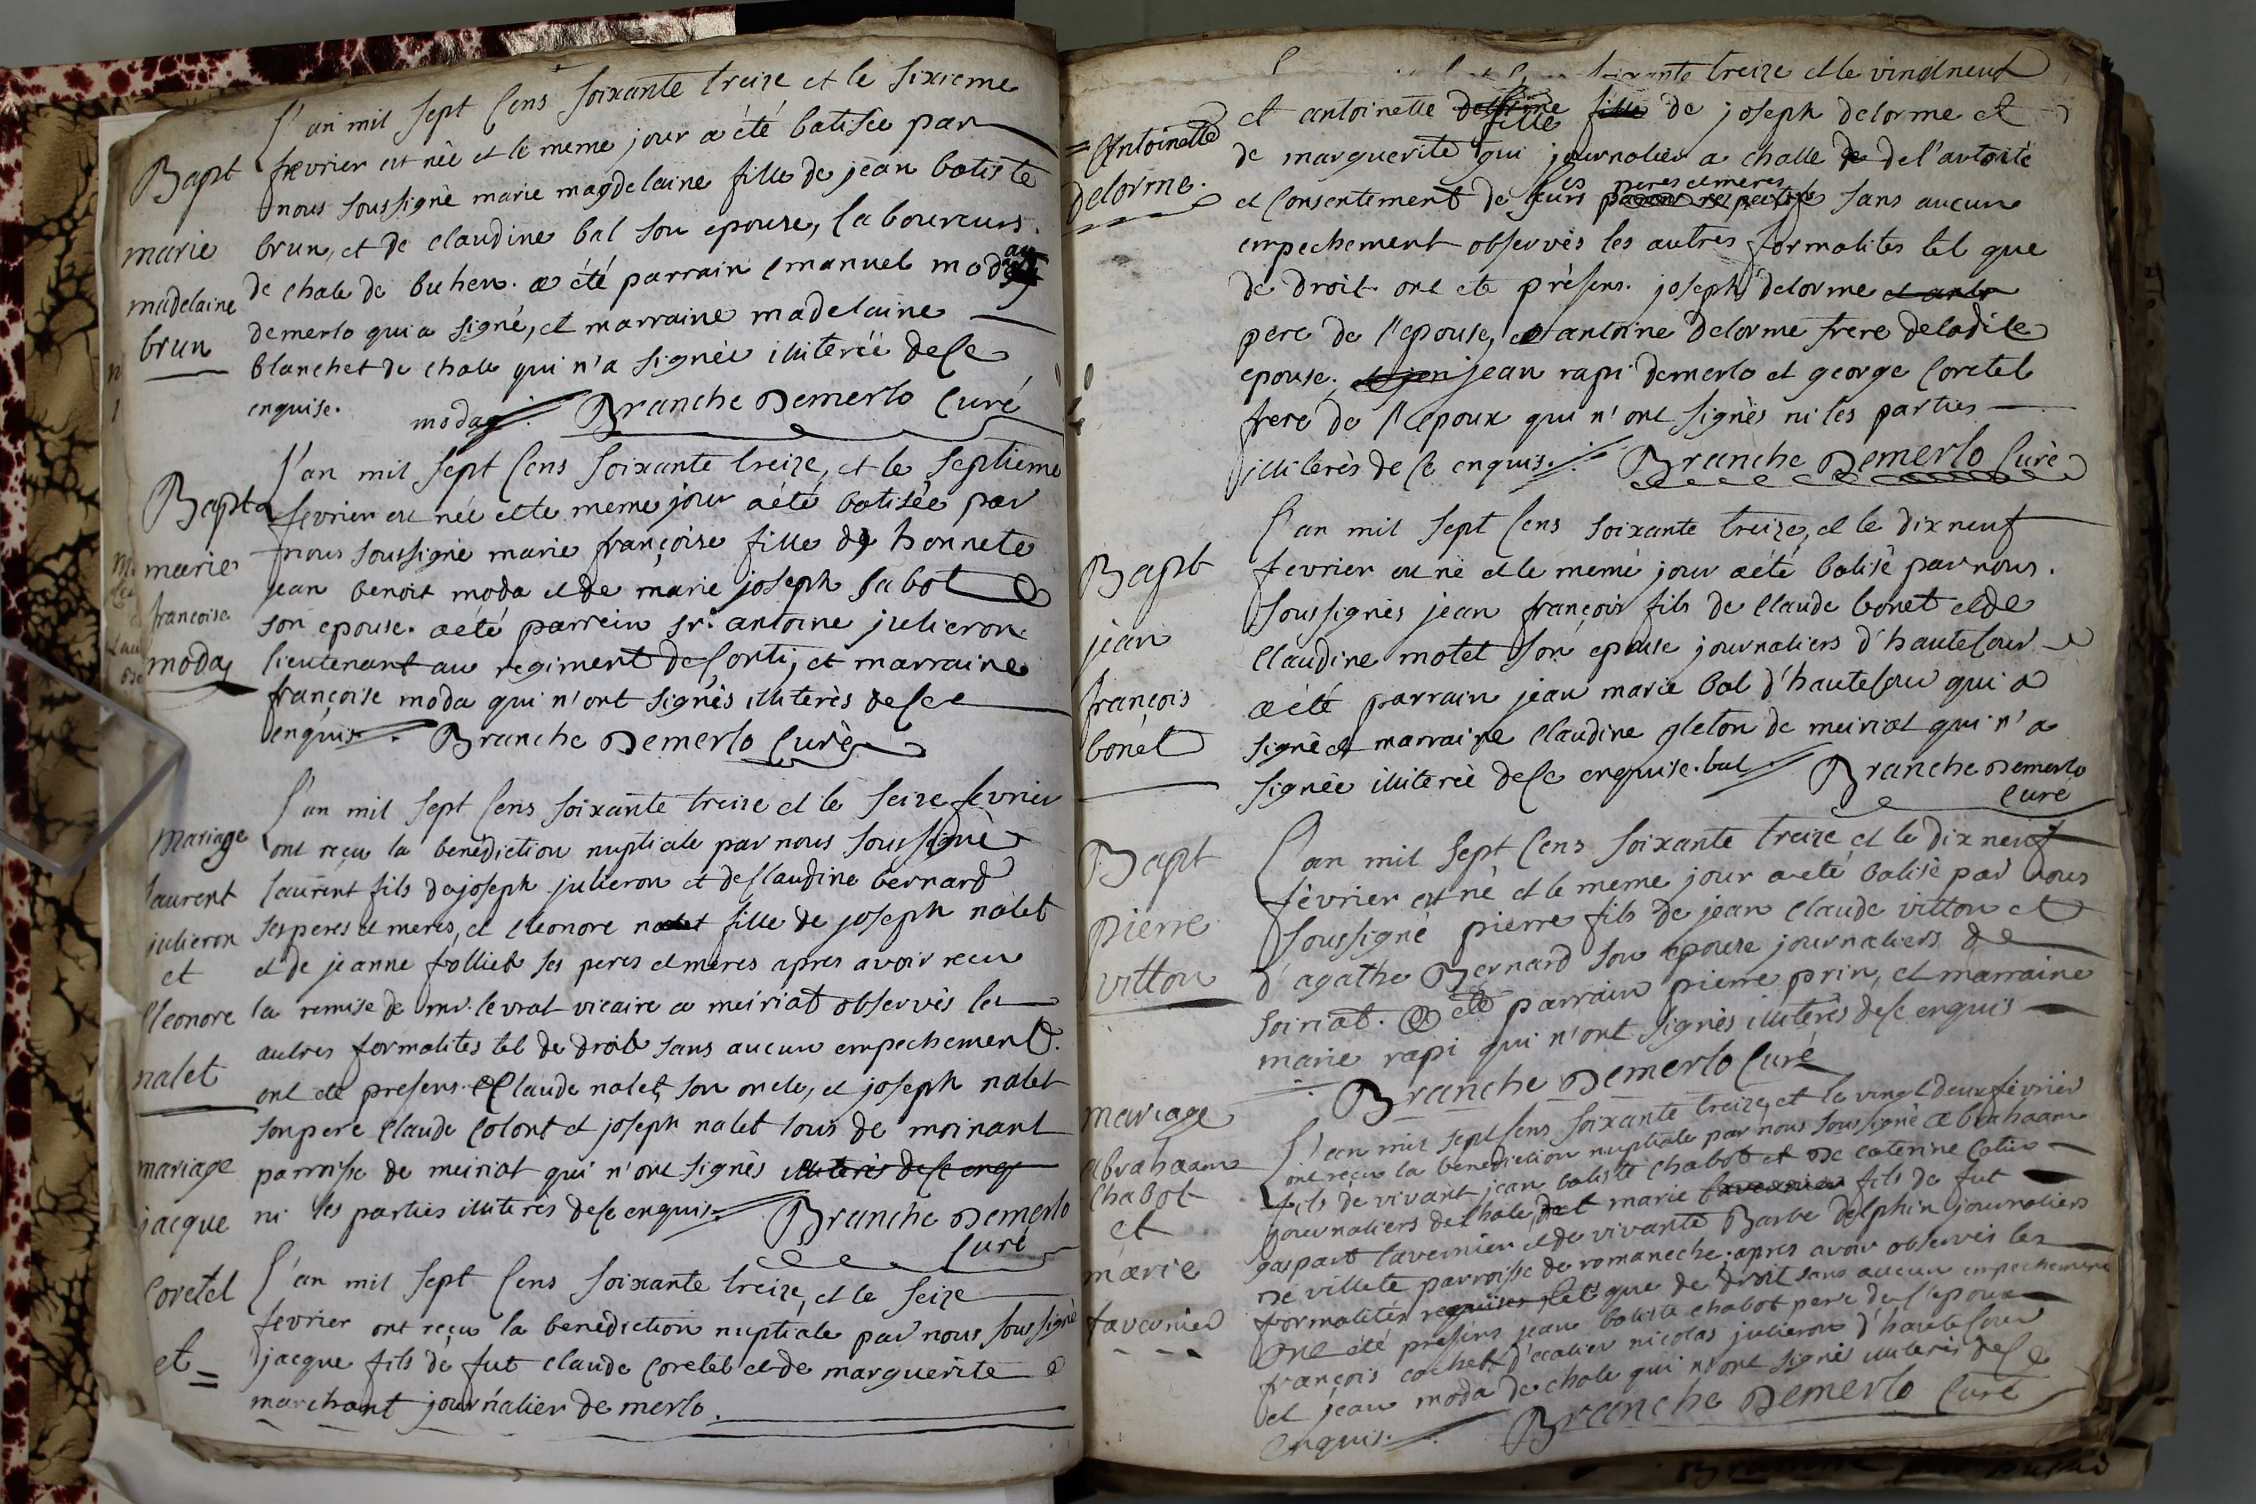 L'an mil sept cens soixante treize et le sixieme
Bapt
fevrier est née et le meme jour a été batisée par
nous soussigné marie magdelaine fille de jean batiste
marie
brun, et de claudine bal son epouse, laboureurs
madelaine
de chale de buhen. a été parrain emanuel moda
brun
demerlo qui a signé, et marraine madelaine
blanchet de chale qui n'a signée illiterée de ce
enquise. moda Branche Demerlo Curé
L'an mil sept cens soixante treize, et le septieme
Bapt
fevrier est née et le meme jour a été batisée par
marie
nous soussigné marie françoise fille de honnete
francoise
jean benoit moda et de marie joseph sabot
moda
son epouse. a été parrein sr. antoine julieron
lieutenant au regiment de Conti, et marraine
françoise moda qui n'ont signés illiterés de ce
enquis. Branche Demerlo Curé
L'an mil sept cens soixante treize et le seize fevrier
mariage
ont reçu la benediction nuptiale par nous soussigné
laurent
laurent fils de joseph julieron et de Claudine bernard
julieron
ses peres et meres, et eleonore nalet fille de joseph nalet
et
et de jeanne folliet ses peres et meres apres avoir recu
eleonore
la remise de mr. levrat vicaire a meiriat observés les
nalet
autres formalites tel de droit sans aucun empechement.
ont été presens Claude nalet son oncle, et joseph nalet
son pere Claude Colont et joseph nalet tous de moinant
mariage
parroisse de meiriat qui n'ont signés illiterés de ce enq
jacque
ni les parties illiterés de ce enquis. Branche Demerlo
Curé
Coretel
L'an mil sept cens soixante treize, et le seize
fevrier ont reçu la benediction nuptiale par nous soussigné
et =
jacque fils de fut claude Coretel et de marguerite
marchant journalier de merlo.
soixante treize et le vindneuf
= Antoinette
et antoinette fille de joseph delorme et
delorme.
de marguerite qui journalier a challe de l'autorité
et Consentement de leurs peres et meres sans aucun
empechement observés les autres formalites tel que
de droit ont eté présens. joseph delorme et anto
pere de l'epouse, et antoine delorme frere de ladite
epouse. jean rapi demerlo et george Coretel
frere de l'epoux qui n'ont signés ni les parties
illiterés de ce enquis. Branche Demerlo Curé
L'an mil sept cens soixante treize, et le dix neuf
Bapt
fevrier est né et le meme jour a été batisé par nous
jean
soussignés jean françois fils de Claude bonet et de
françois
Claudine motet son epouse journaliers d'hauteCour
bonet
a été parrain jean marie bal d'hauteCour qui a
signé et marraine Claudine gleton de meiriat qui n'a
signée illiterée de ce enquise. bal Branche Demerlo
Curé
L'an mil sept cens soixante treize et le dix neuf
Bapt
février est né et le meme jour a été batisé par nous
pierre
soussigné pierre fils de jean Claude vitton et
vitton
d'agathe Bernard son epouse journaliers de
soiriat. a été parrain pierre prin, et marraine
marie rapi qui n'ont signés illiterés de ce enquis
Branche Demerlo Curé
mariage
L'an mil sept cens soixante treize, et le vingt deux février
abrahaam
ont reçu la benediction nuptiale par nous soussigné abrahaam
Chabot
fils de vivant jean batiste Chabot et de caterine Catin
et
journaliers de Chale, et marie tavernier fils de fut
marie
gaspart tavernier et de vivante Barbe delphin journaliers
tavernier
de villete parroisse de romaneche, apres avoir observés les
formalités requises tel que de droit sans aucun empechement
ont été présens jean batiste Chabot pere de l'epoux
françois cochet nicolas julieron d'hauteCour
et jean moda de chale qui n'ont signés illiterés de ce
enquis. Branche Demerlo Curé